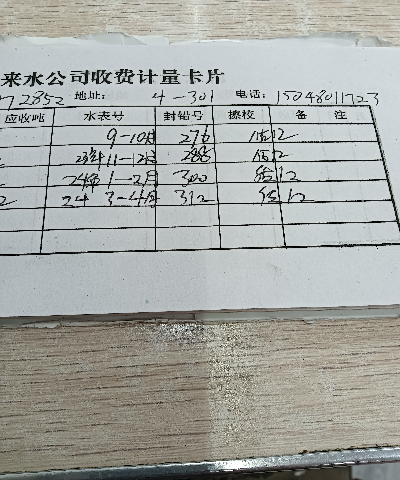 来水公司收费计量卡片
72852 地址: 4-301 电话: 15048011723
应收吨 水表号 封铅号 擦校 备 注
9-10月 276 估12
23年11-12月 288 估12
24年1-2月 300 估12
2 24 3-4月 312 估12